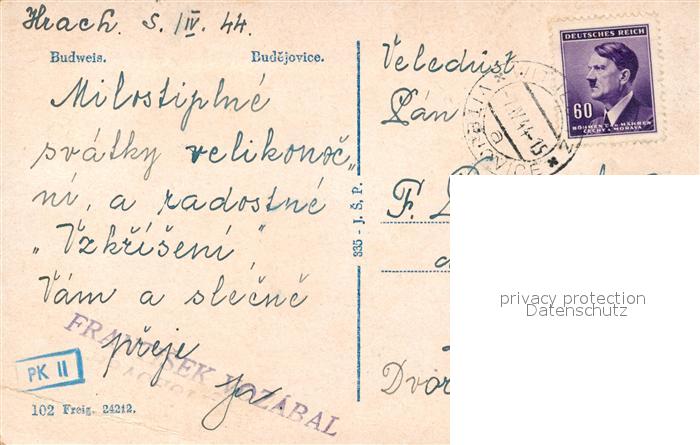 Hrach. 5. IV. 44.
Budweis. Budějovice.
Milostiplné
svátky velikonoč„
ní, a radostné
„Vzkříšení"
Vám a slečně
přeje
FRANTIŠEK VOZÁBAL
PK II
102 Freig. 24212.
335 - J. Š. P.
DEUTSCHES REICH
60
BÖHMEN U. MÄHREN
ČECHY A MORAVA
Veledůst
Pán
F.
Dvoř
privacy protection
Datenschutz